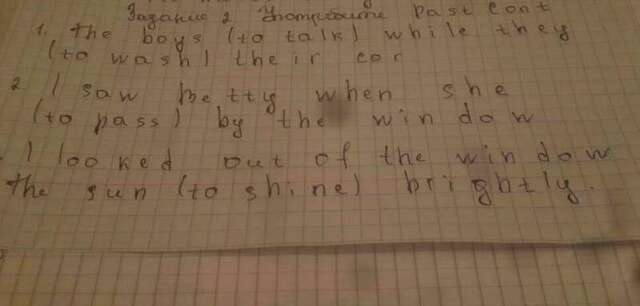 Задание 2 Употребите past cont
1. The boys (to talk) while they
(to wash) their cor
2. I saw Betty when she
(to pass) by the window
I looked out of the window
The sun (to shine) brightly.